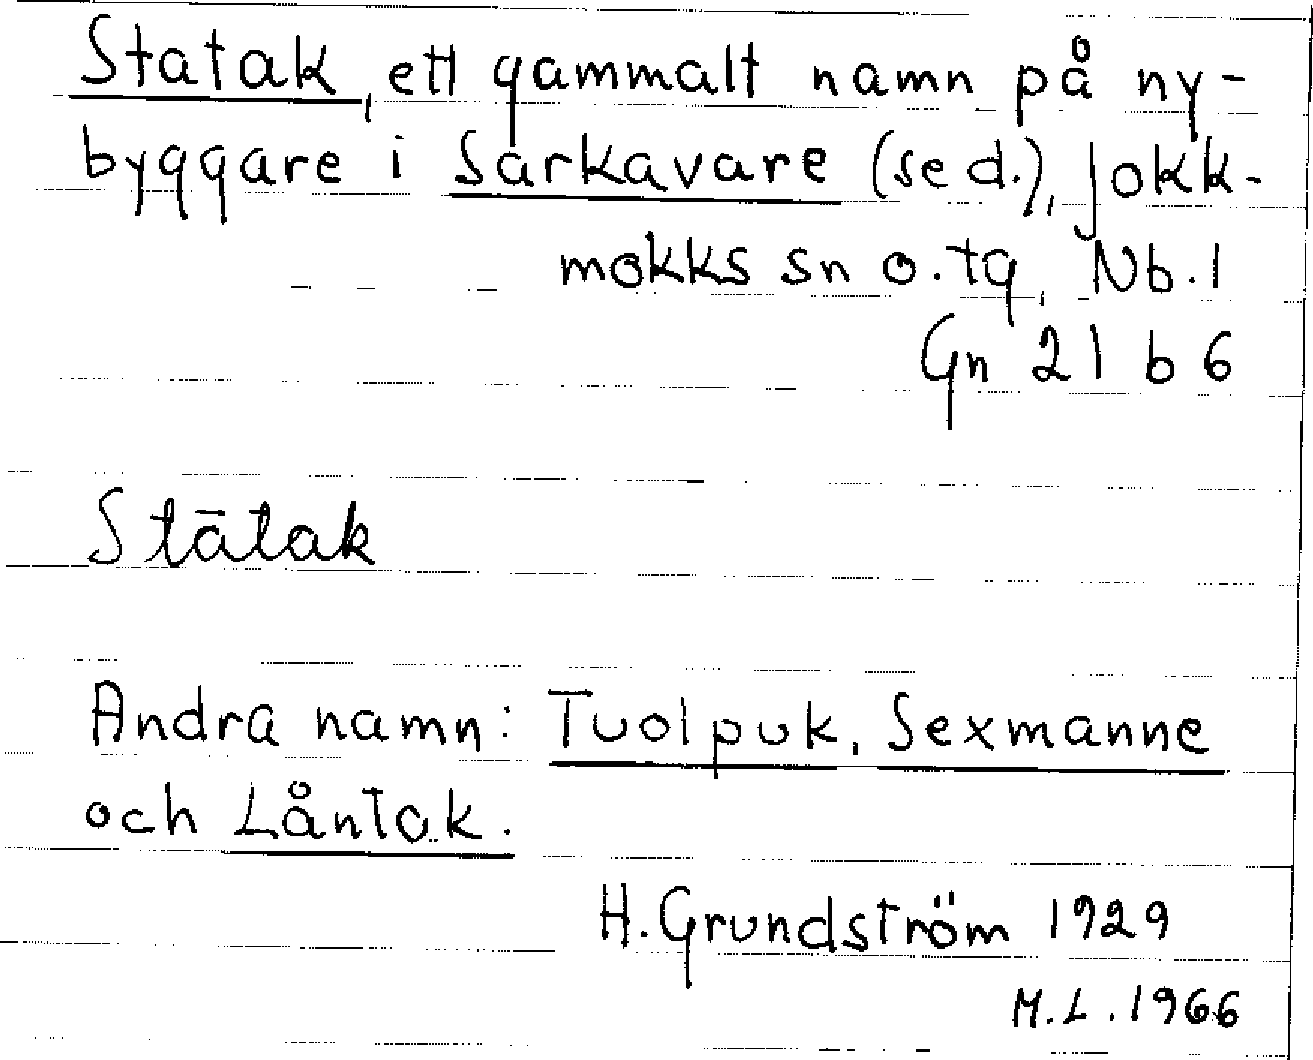 Statak, ett gammalt namn på ny-
byggare i Sarkavare (se d.), Jokk-
mokks sn o. tg, Nb. 1
Gn 21 b 6
Stātak
Andra namn: Tuolpuk, Sexmanne
och Låntak.
H. Grundström 1929
M. L. 1966